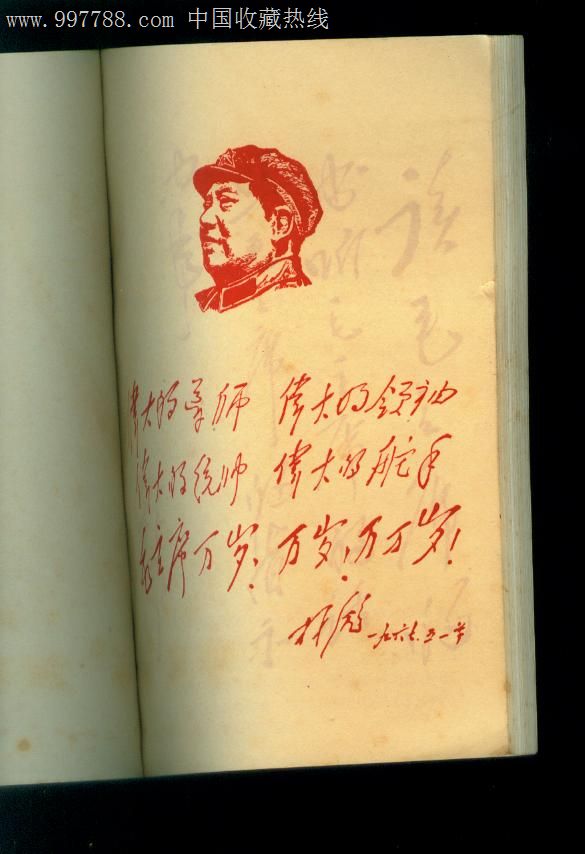 www.997788.com 中国收藏热线
偉大的导师 偉大的领袖
偉大的统帅 偉大的舵手
毛主席万岁！万岁！万万岁！
林彪 一九六七.五一节